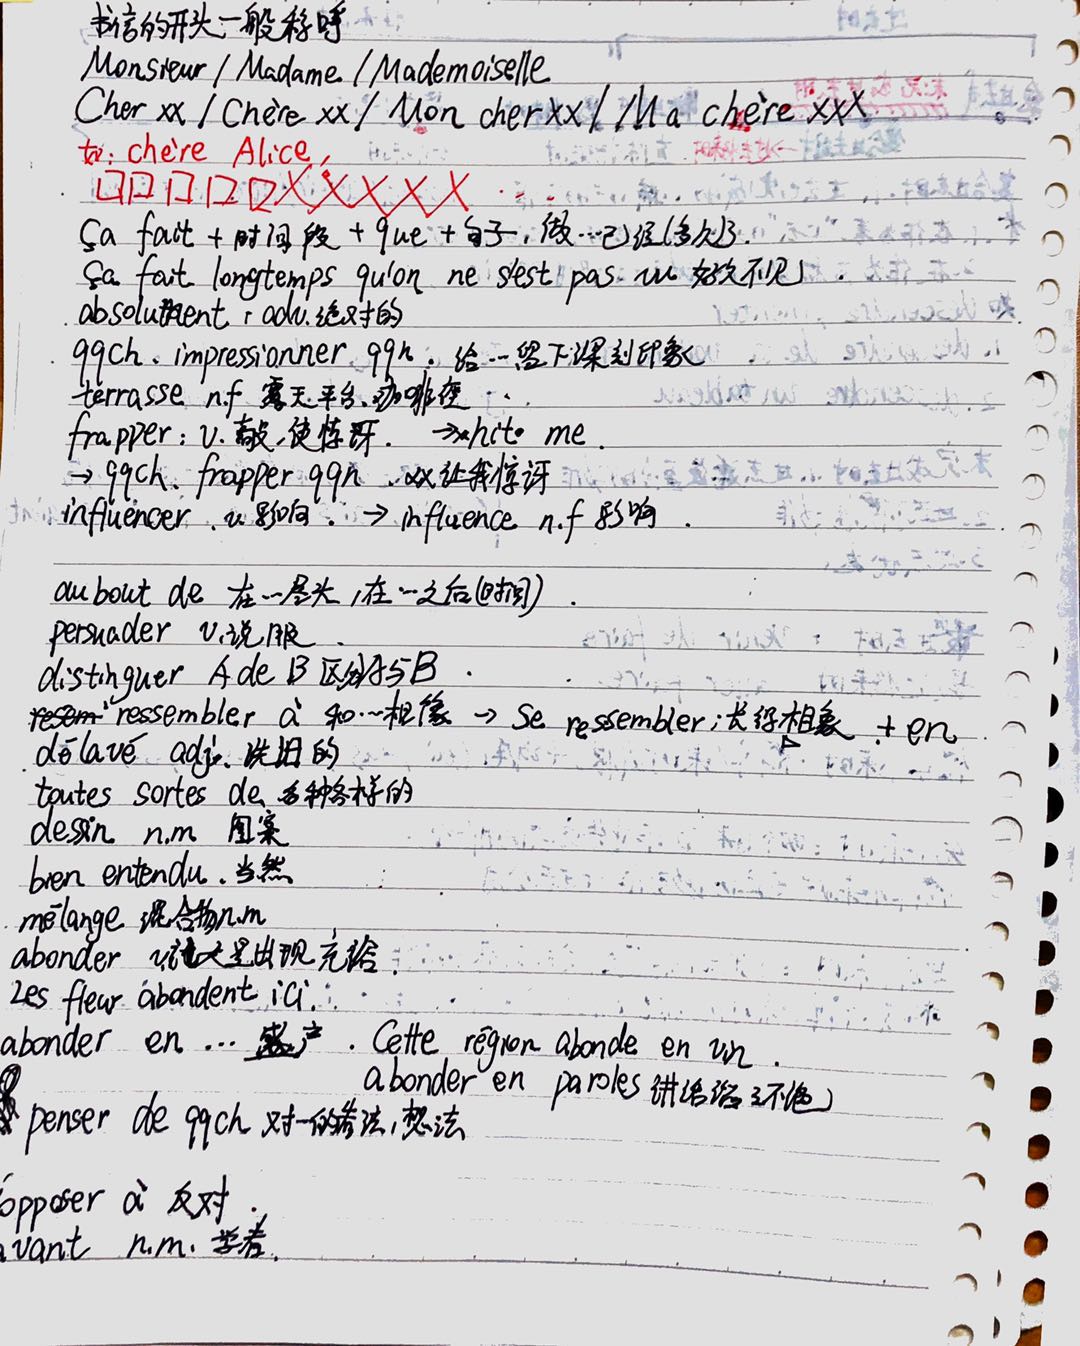 书信的开头一般称呼
Monsieur / Madame / Mademoiselle
Cher xx / Chère xx / Mon cher xx / Ma chère xxx
chère Alice,
Ça fait + 时间段 + que + 句子, 做…已经(多久)了.
ça fait longtemps qu'on ne s'est pas vu 好久不见
absolument : adv. 绝对的
qqch. impressionner qqn. 给…留下深刻印象
terrasse n.f 露天平台、咖啡座
frapper : v. 敲, 使惊讶. → hit me.
→ qqch. frapper qqn. xx让我惊讶
influencer . v. 影响 . → influence n.f 影响 .
au bout de 在…尽头, 在…之后(时间) .
persuader v. 说服 .
distinguer A de B 区分A与B .
ressembler à 和…相像 → se ressembler; 长得相象 + en
délavé adj. 洗旧的
toutes sortes de 各种各样的
dessin n.m 图案
bien entendu . 当然
mélange 混合物 n.m
abonder 大量出现 充裕.
Les fleur abondent ici.
abonder en … 盛产 . Cette région abonde en vin .
abonder en paroles 讲话滔滔不绝
penser de qqch 对…的看法, 想法
opposer à 反对 .
avant n.m. 学者.